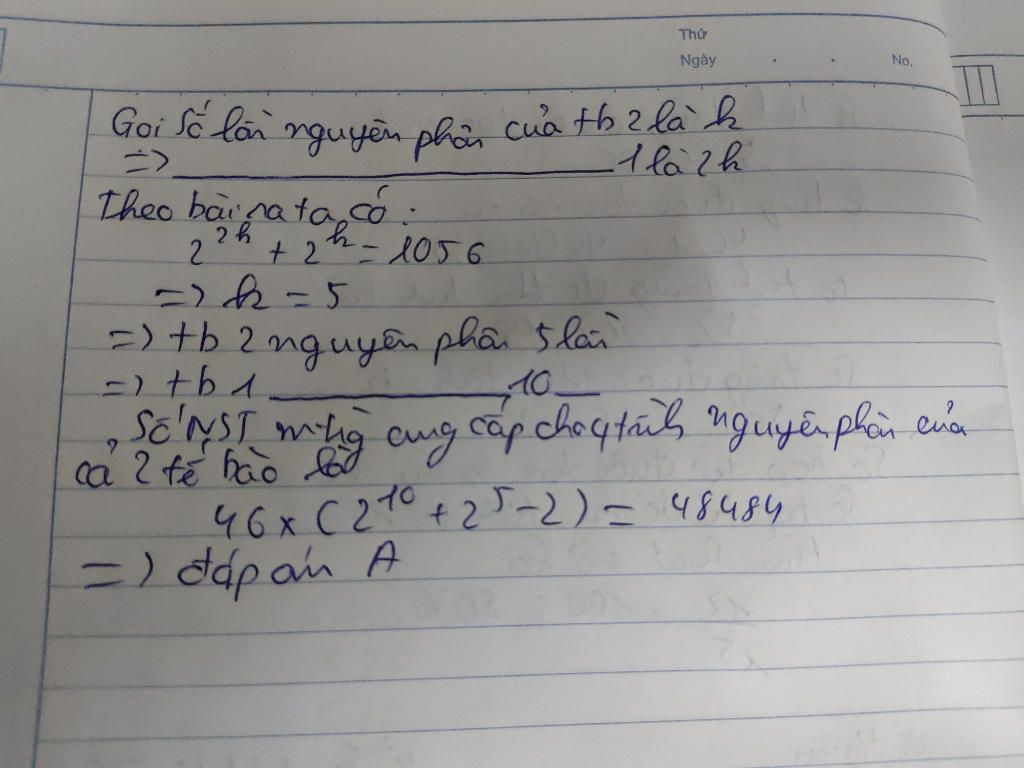 Thứ
Ngày . . No.
Gọi số lần nguyên phân của tb 2 là k
=> ____________ 1 là 2k
Theo bài ra ta có:
2^2k + 2^k = 1056
=> k = 5
=> tb 2 nguyên phân 5 lần
=> tb 1 ________ 10 __
Số NST mtg cung cấp cho qtrình nguyên phân của
cả 2 tế bào là
46 x (2^10 + 2^5 - 2) = 48484
=> đáp án A